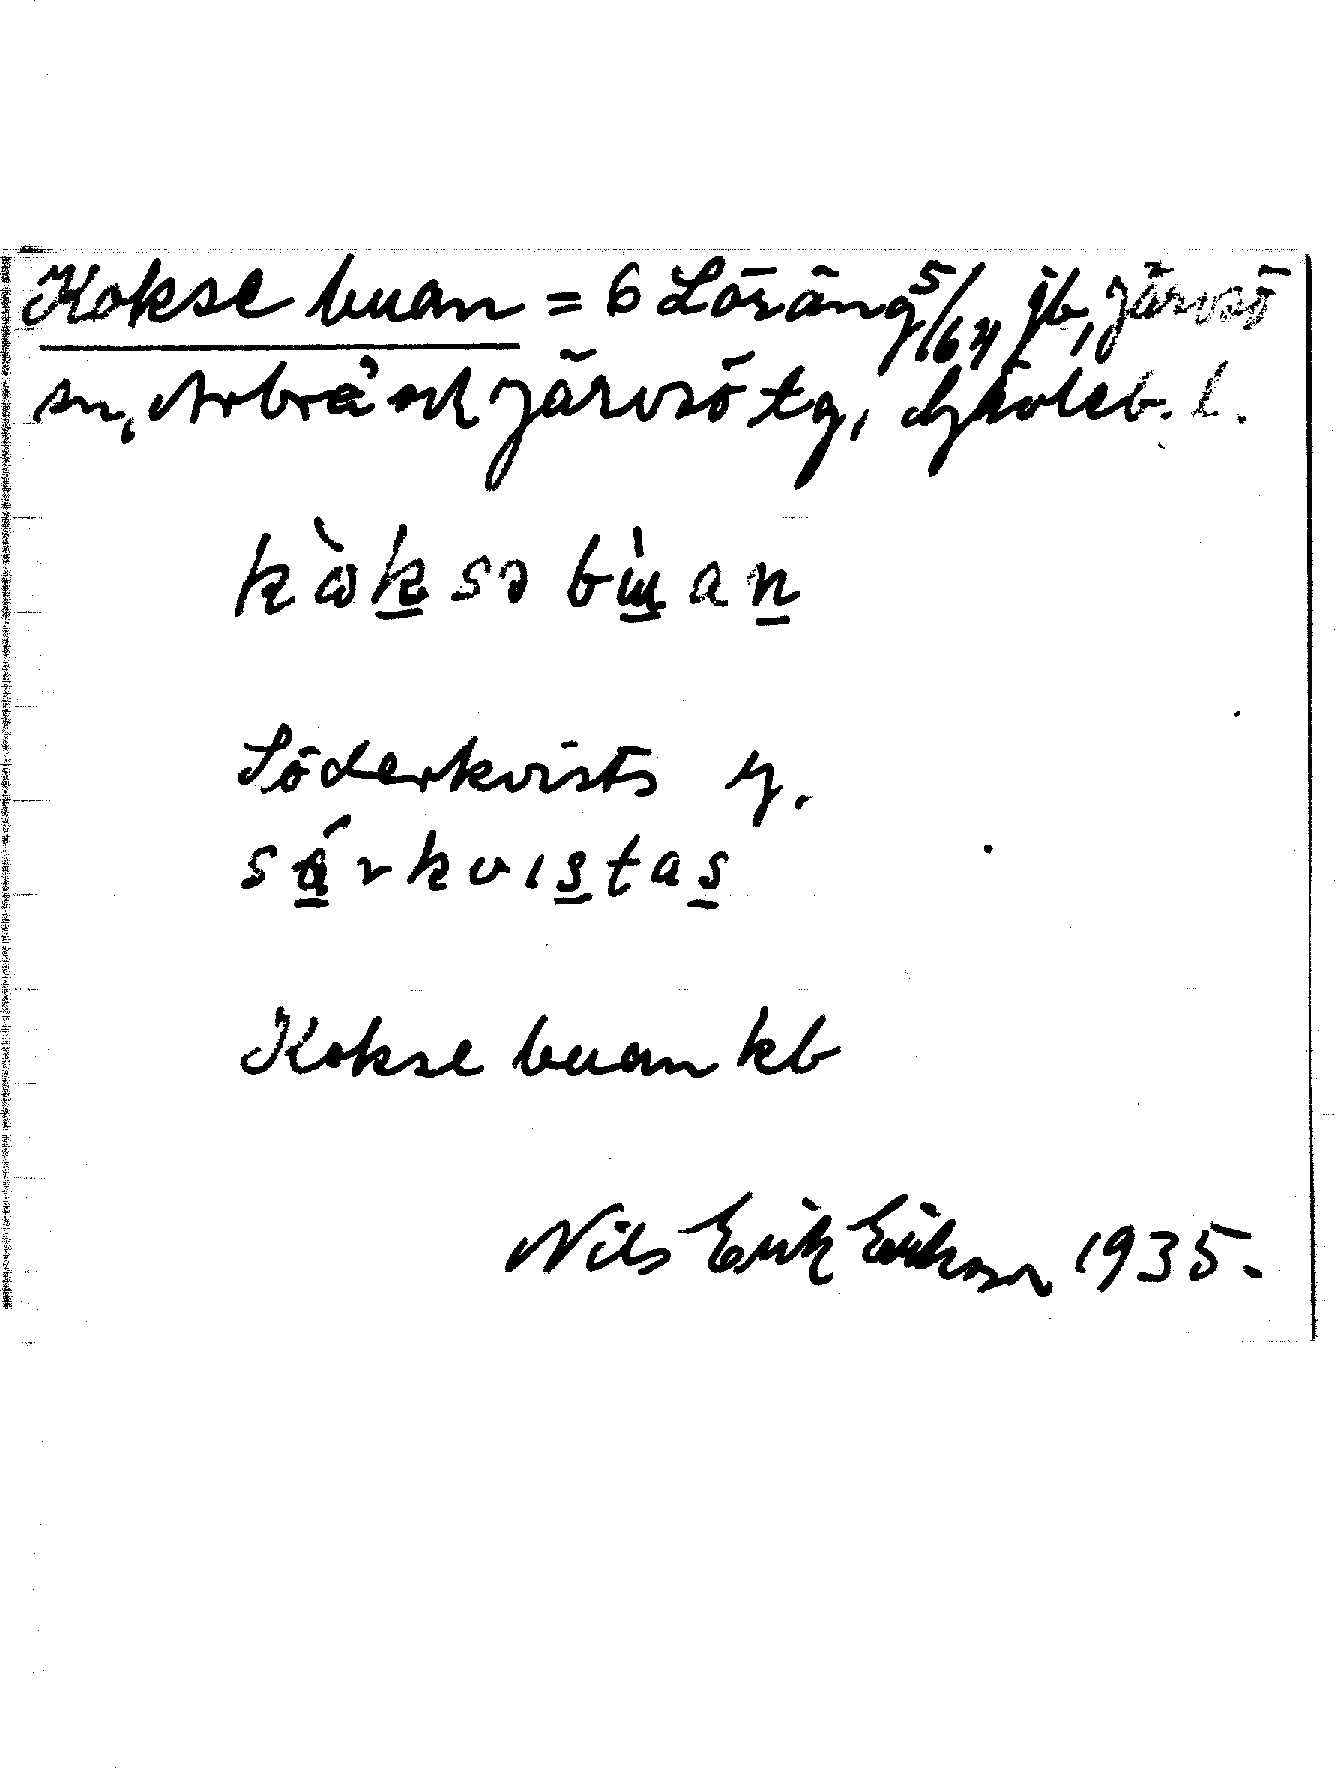 Kokse buan = 6 Löräng 5/64 jb, Järvsö
sn, Arbrå och Järvsö tg, Gävleb. l.
kὼksə bu̇̀an
Söderkvists y.
sǻrkvıstas
Kokse buan kb
Nils Erik Erikson 1935.